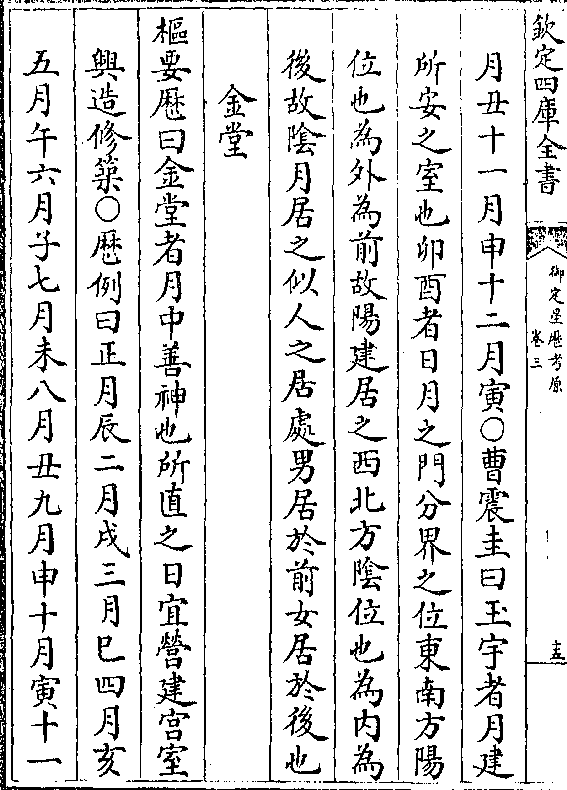 欽定四庫全書
御定星歷考原
卷三
月丑十一月申十二月寅○曹震圭曰玉宇者月建
所安之室也卯酉者日月之門分界之位東南方陽
位也為外為前故陽建居之西北方陰位也為内為
後故陰月居之似人之居處男居於前女居於後也
金堂
樞要歷曰金堂者月中善神也所直之日宜營建宫室
興造修築○歷例曰正月辰二月戌三月巳四月亥
五月午六月子七月未八月丑九月申十月寅十一